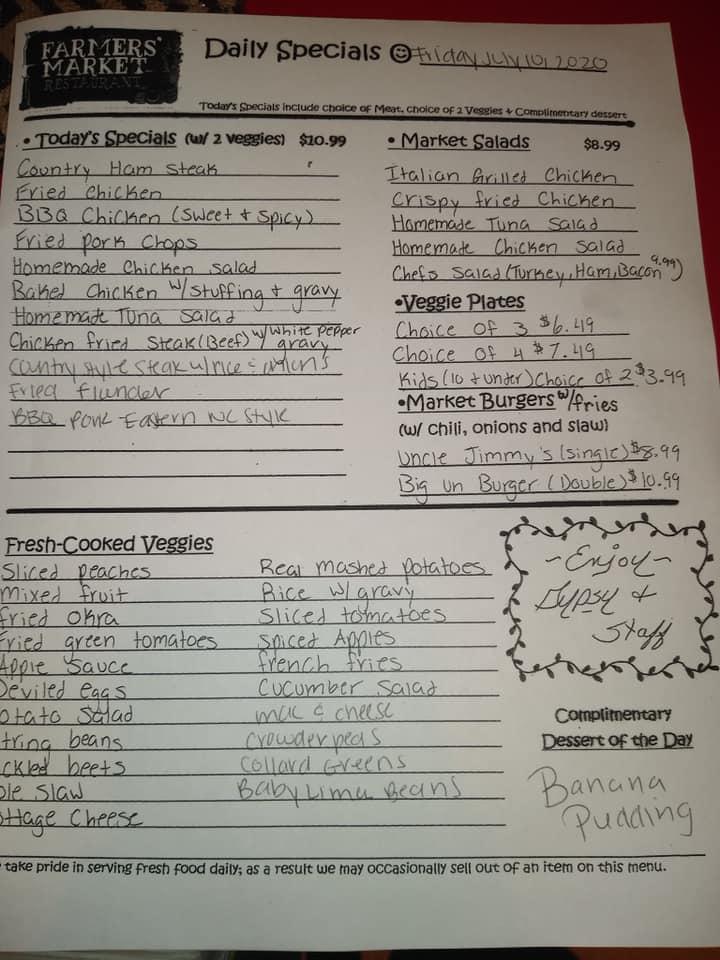 FARMERS'
MARKET
RESTAURANT
Daily Specials Friday July 10, 2020
Today's Specials include choice of Meat, choice of 2 Veggies + Complimentary dessert
• Today's Specials (w/ 2 veggies) $10.99
Country Ham Steak
Fried Chicken
BBQ Chicken (Sweet & Spicy)
Fried Pork Chops
Homemade Chicken Salad
Baked Chicken w/ Stuffing & gravy
Homemade Tuna Salad
Chicken fried Steak (Beef) w/ white pepper gravy
Country style Steak w/ rice & onions
Fried flounder
BBQ Pork - Eastern NC Style
• Market Salads $8.99
Italian Grilled Chicken
Crispy fried Chicken
Homemade Tuna Salad
Homemade Chicken Salad
Chefs Salad (Turkey, Ham, Bacon 9.99)
•Veggie Plates
Choice of 3 $6.49
Choice of 4 $7.49
Kids (10 & under) Choice of 2 $3.99
•Market Burgers w/fries
(w/ chili, onions and slaw)
Uncle Jimmy's (single) $8.99
Big un Burger (Double) $10.99
Fresh-Cooked Veggies
Sliced peaches
mixed fruit
fried okra
Fried green tomatoes
Apple Sauce
Deviled eggs
otato Salad
tring beans
ckled beets
ole Slaw
ottage Cheese
Real mashed potatoes
Rice w/ gravy
Sliced tomatoes
Spiced Apples
french fries
Cucumber Salad
mac & cheese
Crowder peas
Collard Greens
Baby Lima Beans
~Enjoy~
Gypsy &
Staff
Complimentary
Dessert of the Day
Banana
Pudding
take pride in serving fresh food daily; as a result we may occasionally sell out of an item on this menu.